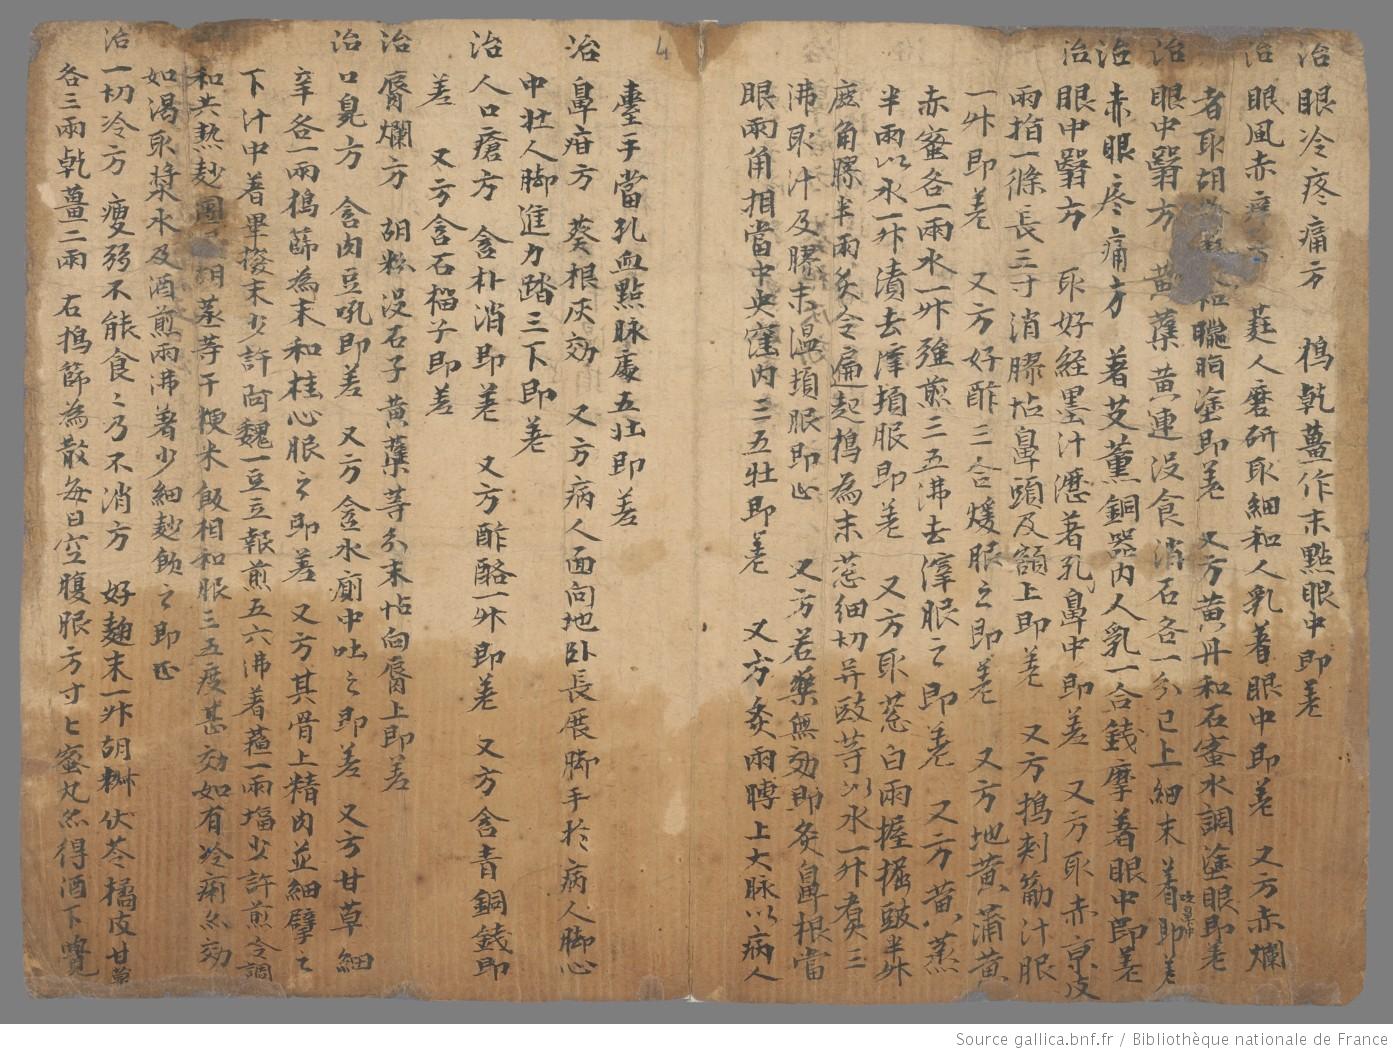 治眼冷疼痛方　擣乾薑作末點眼中即差
治眼風赤　　　人磨研取細和人乳著眼中即差　又方赤爛
者取胡　　和臘脂塗即差　又方黄丹和石蜜水調塗眼即差
治眼中翳方　黄蘗黄連没食消石各一分已上細末著即差
吹鼻中
治赤眼疼痛方　著艾薰銅器内人乳一合錢摩著眼中即差
治眼中翳方　取好経墨汁瀝著孔鼻中即差　又方取赤皮
兩指一條長三寸消膠怗鼻頭及額上即差　又方擣刺蘜汁服
一升即差　又方好酢三合煖服之即差　又方地黄蒲黄
赤蜜各一兩水一升強煎三五沸去滓服之即差　又方黄蒸
半兩以水一升漬去滓頓服即差　又方取葱白兩握椒豉半升
鹿角膠半兩炙令扁起擣為末葱細切并豉等以水一升煮三
沸取汁及膠末温頓服即止　又方若藥無効即灸鼻根當
眼兩角相當中央窪内三五壮即差　又方灸兩膊上大脉以病人
臺手當孔血點脉處五壮即差
治鼻疳方　葵根灰効　又方病人面向地卧長展脚手於病人脚心
中壮人脚進力踏三下即差
治人口瘡方　含朴消即差　又方酢酪一升即差　又方含青銅錢即
差　又方含石榴子即差
治脣爛方　胡粉没石子黄蘗等分末怗向脣上即差
治口臭方　含肉豆吼即差　又方含水廁中吐之即差　又方甘草細
辛各一兩擣篩為末和桂心服之即差　又方其骨上精肉並細擘之
下汁中著畢撥末少許阿魏一豆豆報煎五六沸著蘓一兩塩少許煎令調
和共熱麨團　胡荽等干粳米飯相和服三五度甚効如有冷痢亦効
如渴取漿水及酒煎兩沸著少細麨飲之即止
治一切冷方　瘦弱不能食之乃不消方　好麹末一升胡椒伏苓橘皮甘草
各三兩乾薑二兩　右擣篩為散每日空腹服方寸匕蜜丸亦得酒下覺
4
Source gallica.bnf.fr / Bibliothèque nationale de France